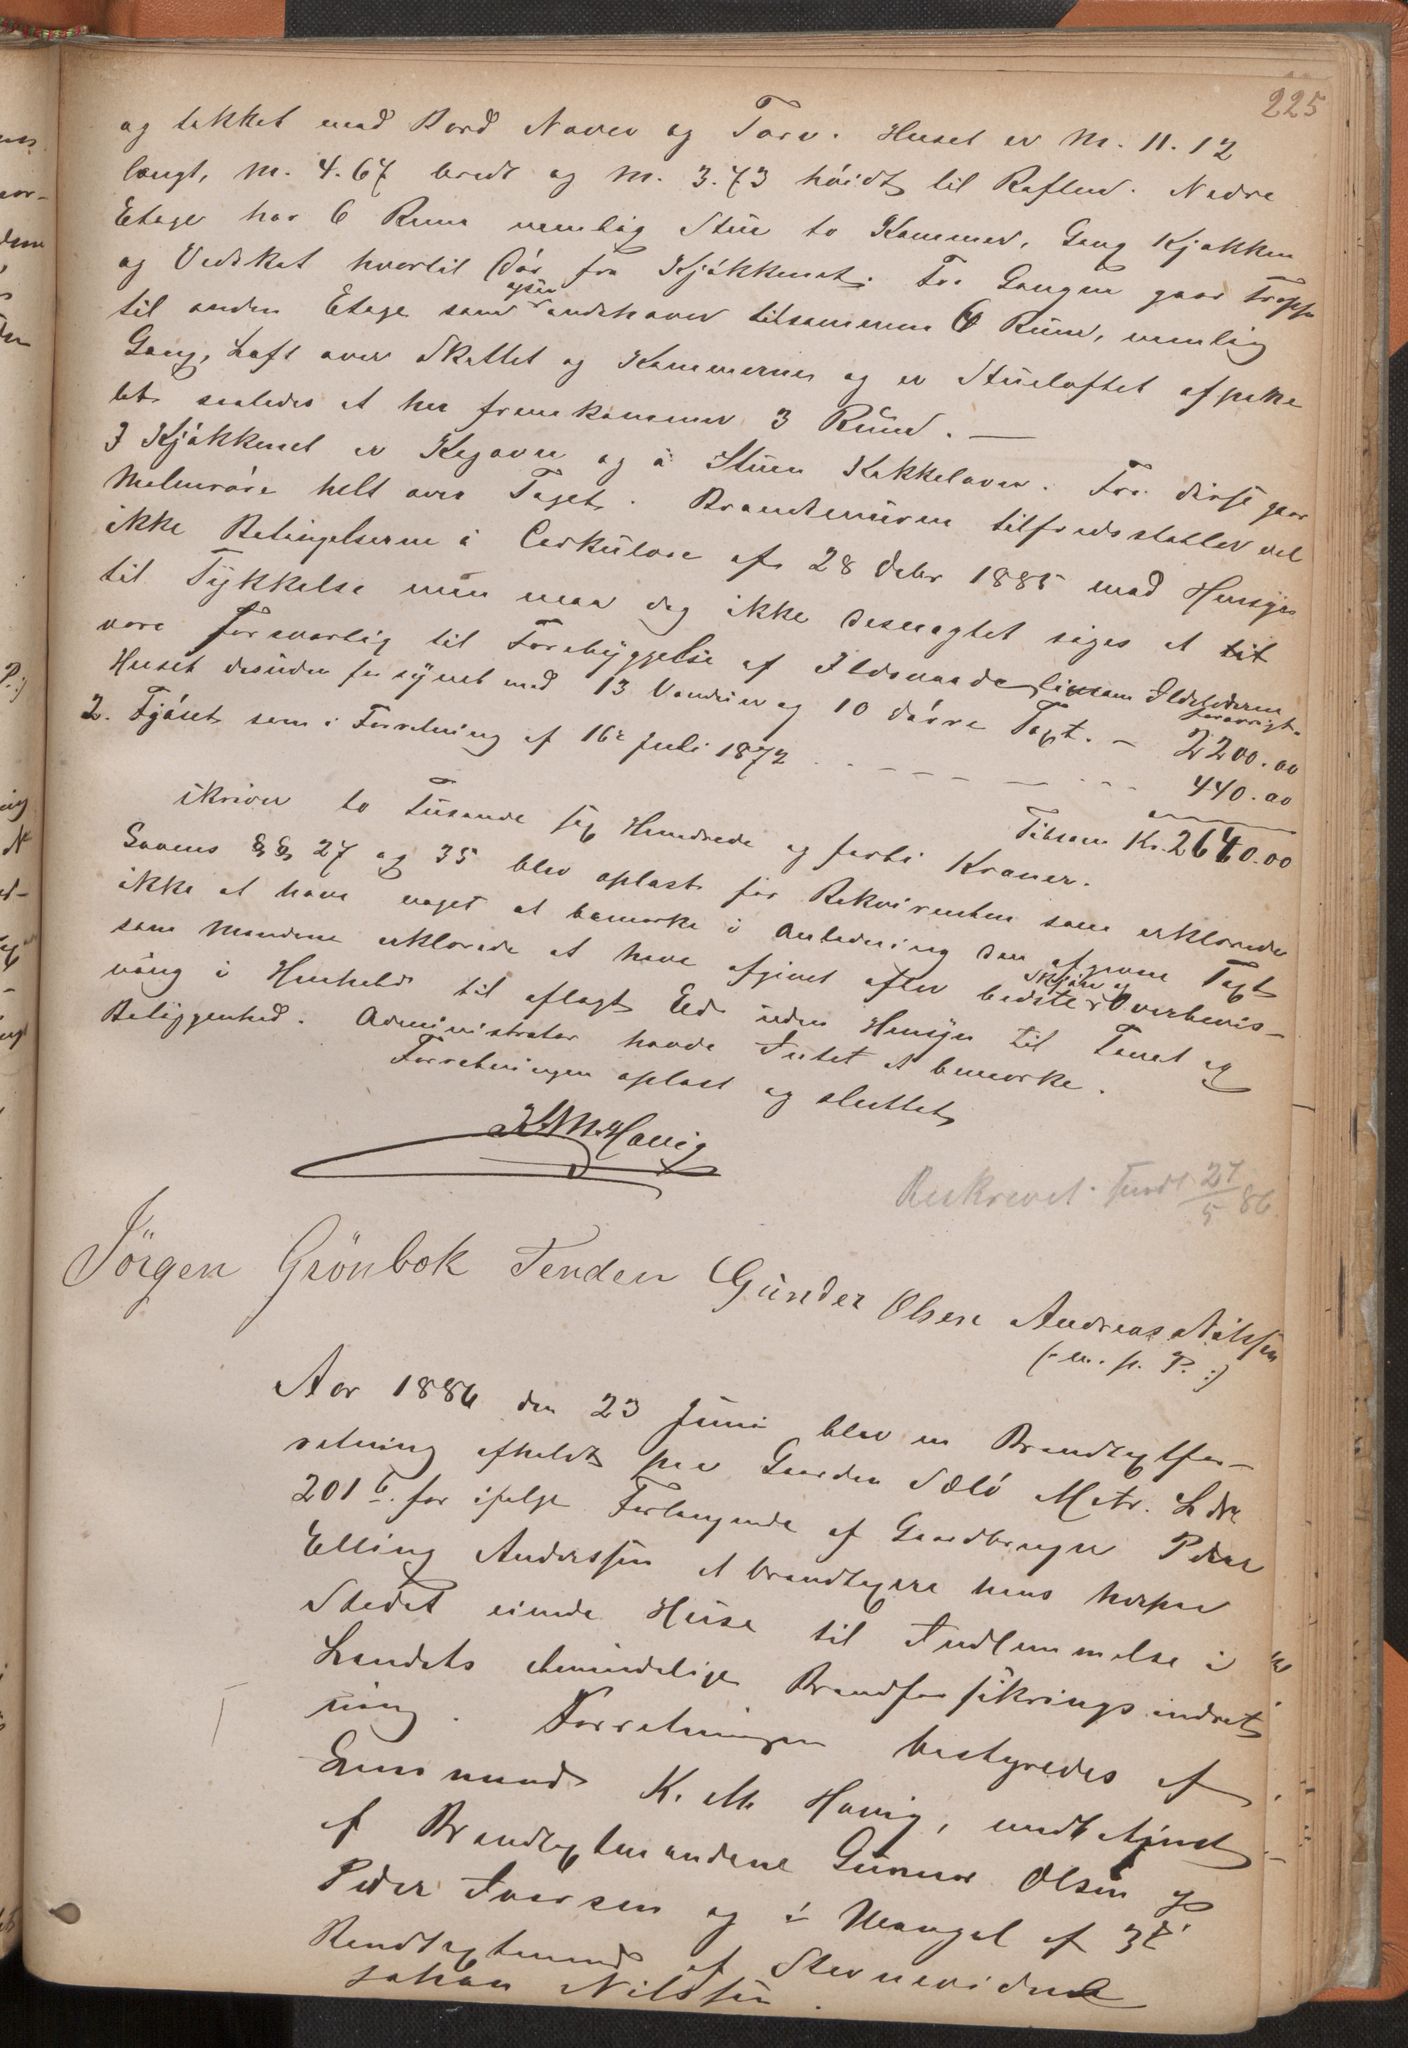 225
og tækket med Bord Næver og Torv. Huset er M. 11.12
langt, M. 4.67 bredt og M. 3.73 höidt til Raften. Nedre
Etage har 6 Rum nemlig Stue to Kammer, Gang Kjøkken
og Vedskot hvortil Dör fra Kjökkenet. Fra Gangen gaar Trappe
til anden Etage som ogsaa indehaver tilsammen 6 Rum, nemlig
Gang, Loft over Skottet og Kammerne og er Stueloftet afpane
let saaledes at her fremkommer 3 Rum. —
I Kjökkenet er Kogovn og i Stuen Kakkelovn. Fra disse gaar
Malmröre helt over Taget. Brandmuren tilfredsstiller vel
ikke Betingelserne i Cirkulære af 28 Debr 1885 med Hensyn
til Tykkelse men maa dog ikke desmagtet siges at
være forsvarlig til Forebyggelse af Ildsvaade ligesom Ildstederne
forøvrigt.
Huset desuden forsynet med 13 Vinduer og 10 dörre Taxt. — 2200.00
2. Fjöset som i Forretning af 16de Juli 1872 . . — — — — . . 440.00
Tilsam Kr. 2640.00
skriver to Tusende sex Hundrede og forti Kroner.
Lovens §§ 27 og 35 blev oplæst for Rekvirenten som erklærede
ikke at have noget at bemærke i Anledning den afgivne Taxt
som Mændene erklærede at have afgivet efter bedste Skjön og Overbevis-
ning i Henhold til aflagt Ed uden Hensyn til Tomt og
Beliggenhed. Administrator havde Intet at bemærke.
Forretningen oplæst og sluttet
K M Havig
Beskrevet. Sendt 27/5 86.
Jörgen Grönbok Tenden Gunder Olsen Andreas Nilsen
(: m. p. P. :)
Aar 1886 den 23 Juni blev en Brandtaxtfor-
retning afholdt paa Gaarden Sælö Matr. L No
201 b. for ifölge Forlangende af Gaardbruger Peder
Elling Anderssen at brandtaxere hans herpaa
Stedet eiende Huse til Indlemmelse i
Landets Almindelige Brandforsikringsindret
ning. Forretningen bestyredes af
Lensmand K. M. Havig, medbetjent
af Brandtaxtmændene Gunnar Olsen og
Peder Iversen og i Mangel af 3die
Brandtaxtmand af Stevnevidne
Johan Nilssen.